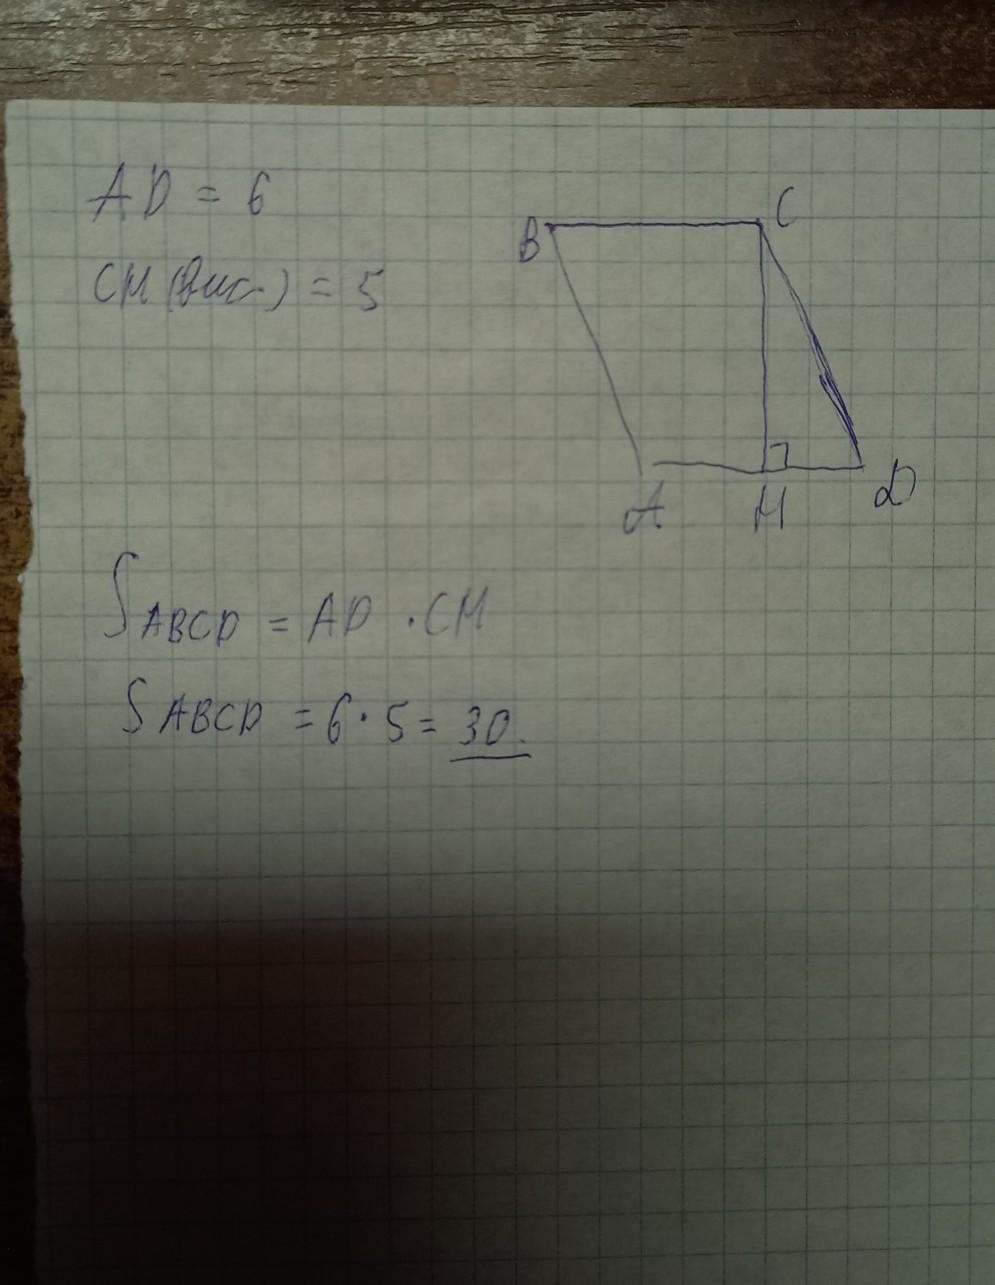 AD = 6
CH (выс.) = 5
B
C
A
H
D
SABCD = AD · CH
SABCD = 6 · 5 = 30.